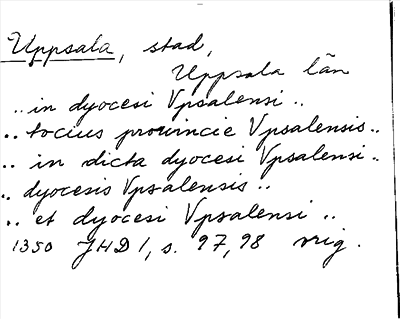 Uppsala, stad,
Uppsala län
..in dyocesi Vpsalensi..
..tocius prouincie Vpsalensis..
..in dicta dyocesi Vpsalensi..
..dyocesis Vpsalensis..
..et dyocesi Vpsalensi..
1350 JHD 1, s. 97, 98 orig.